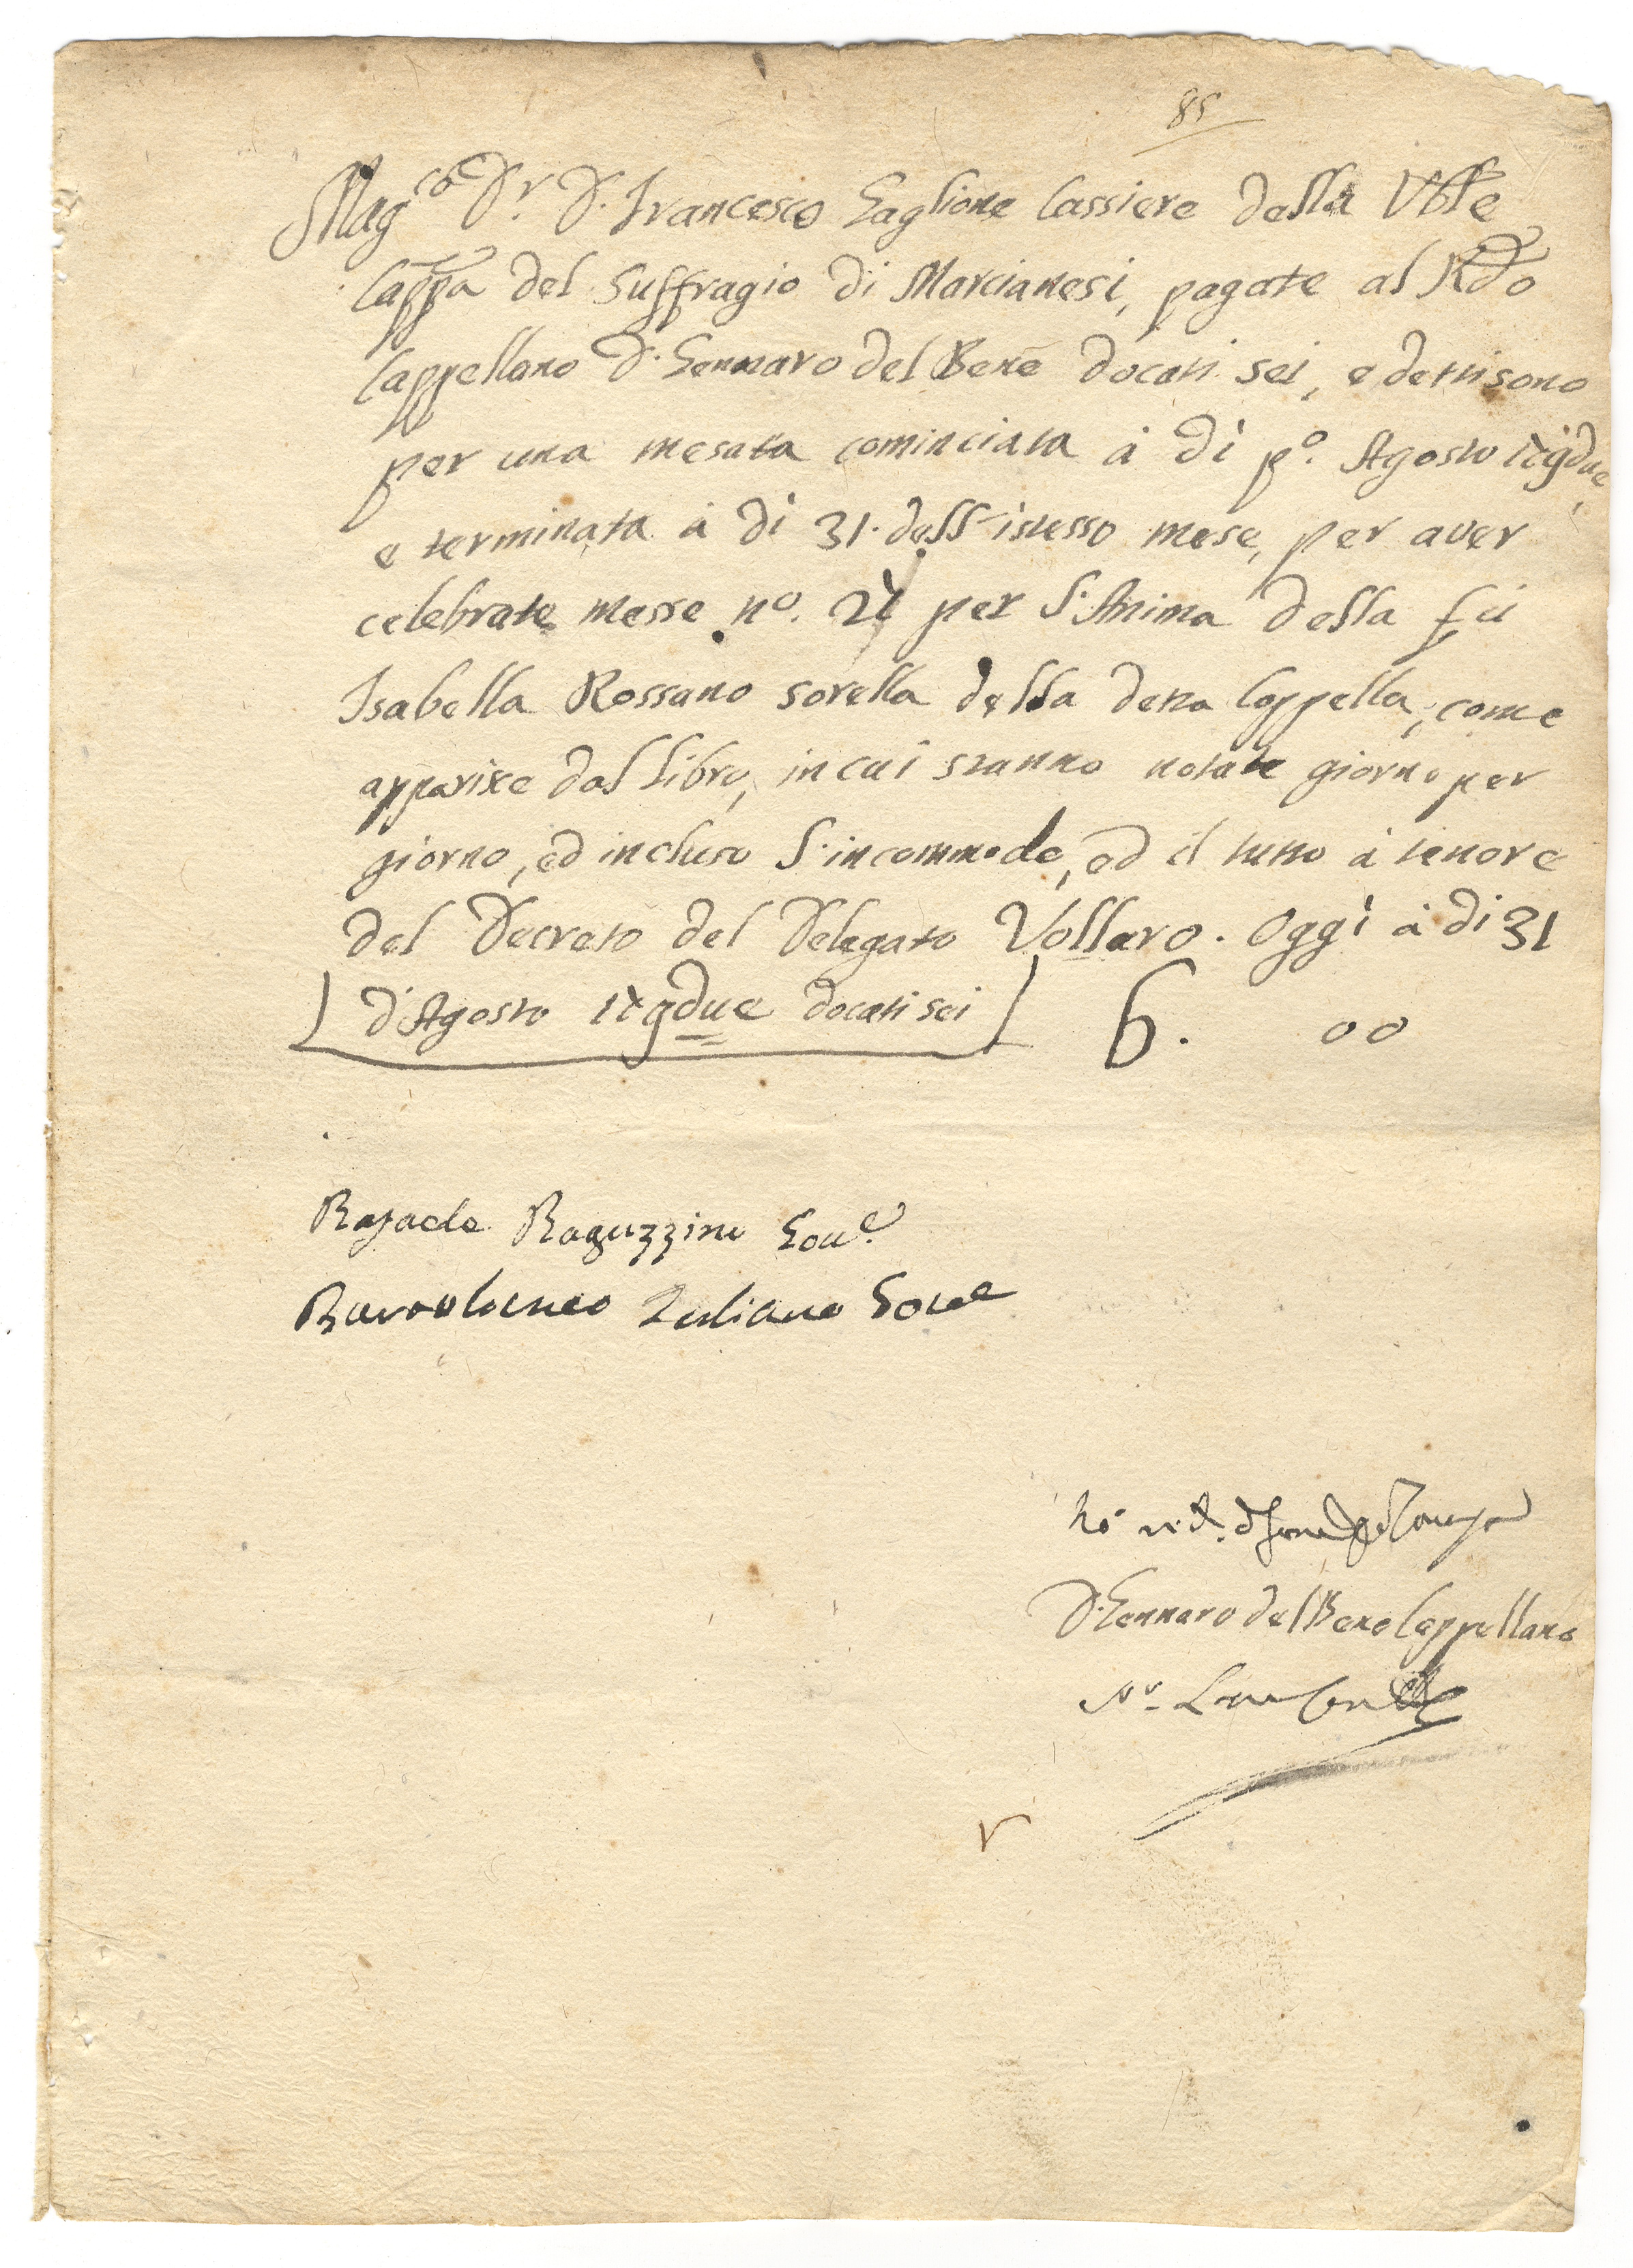 85
Mag.co Dr. D. Francesco Gaglione Cassiere della Ven.le
Capp.a del Suffragio di Marcianesi, pagate al R.do
Cappellano D. Gennaro del Bene docati sei, e detti sono
per una mesata cominciata à dì p.o Agosto 179due
e terminata à dì 31. dell'istesso mese, per aver
celebrate messe n.o 27 per l'Anima della fù
Isabella Rossano sorella della detta Cappella, come
apparisce dal libro, in cui stanno notate giorno per
giorno, ed incluso l'incommodo, ed il tutto à tenore
del Decreto del Delegato Vollaro. Oggi à dì 31
d'Agosto 179due docati sei 6. 00
Rafaele Raguzzini Gov.e
Bartolomeo Iuliano Gov.e
D. Gennaro del Bene Cappellano